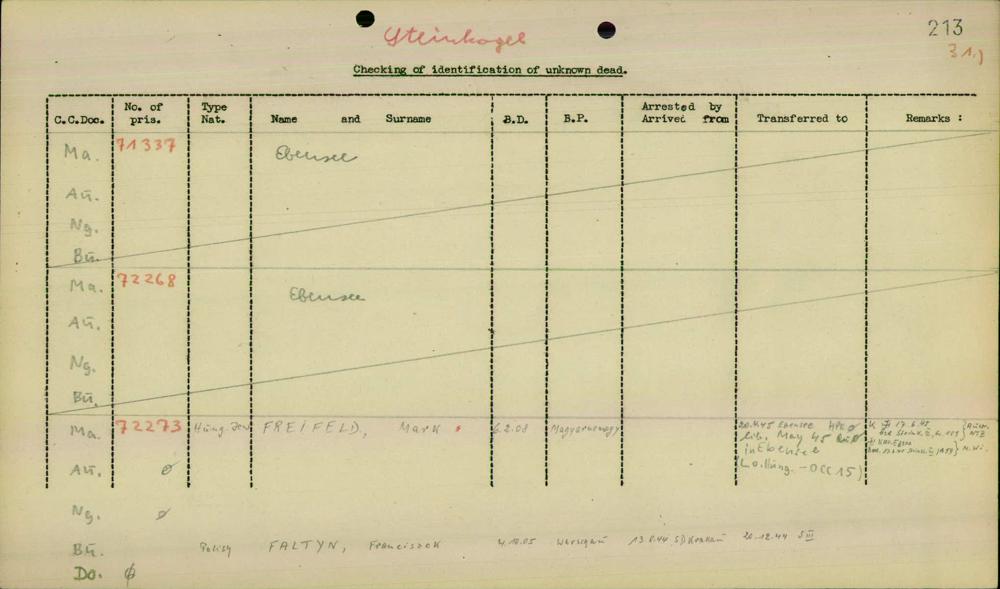 Steinkogel
213
31.)
Checking of identification of unknown dead.
C.C.Doc. No. of pris. Type Nat. Name and Surname B.D. B.P. Arrested by Arrived from Transferred to Remarks :
Ma. 71337 Ebensee
Au.
Ng.
Bu.
Ma. 72268 Ebensee
Au.
Ng.
Bu.
Ma. 72273 Hung. Jew FREIFELD, Mark 6.2.08
lib. May 45
Au. ø in Ebensee
(Lo.Hung. - OCC 15)
Ng. ø
Bu. Polish FALTYN, Franciszek 4.10.05 Warschau 13.8.44 SD Krakau 20.12.44 S III
Do. ø